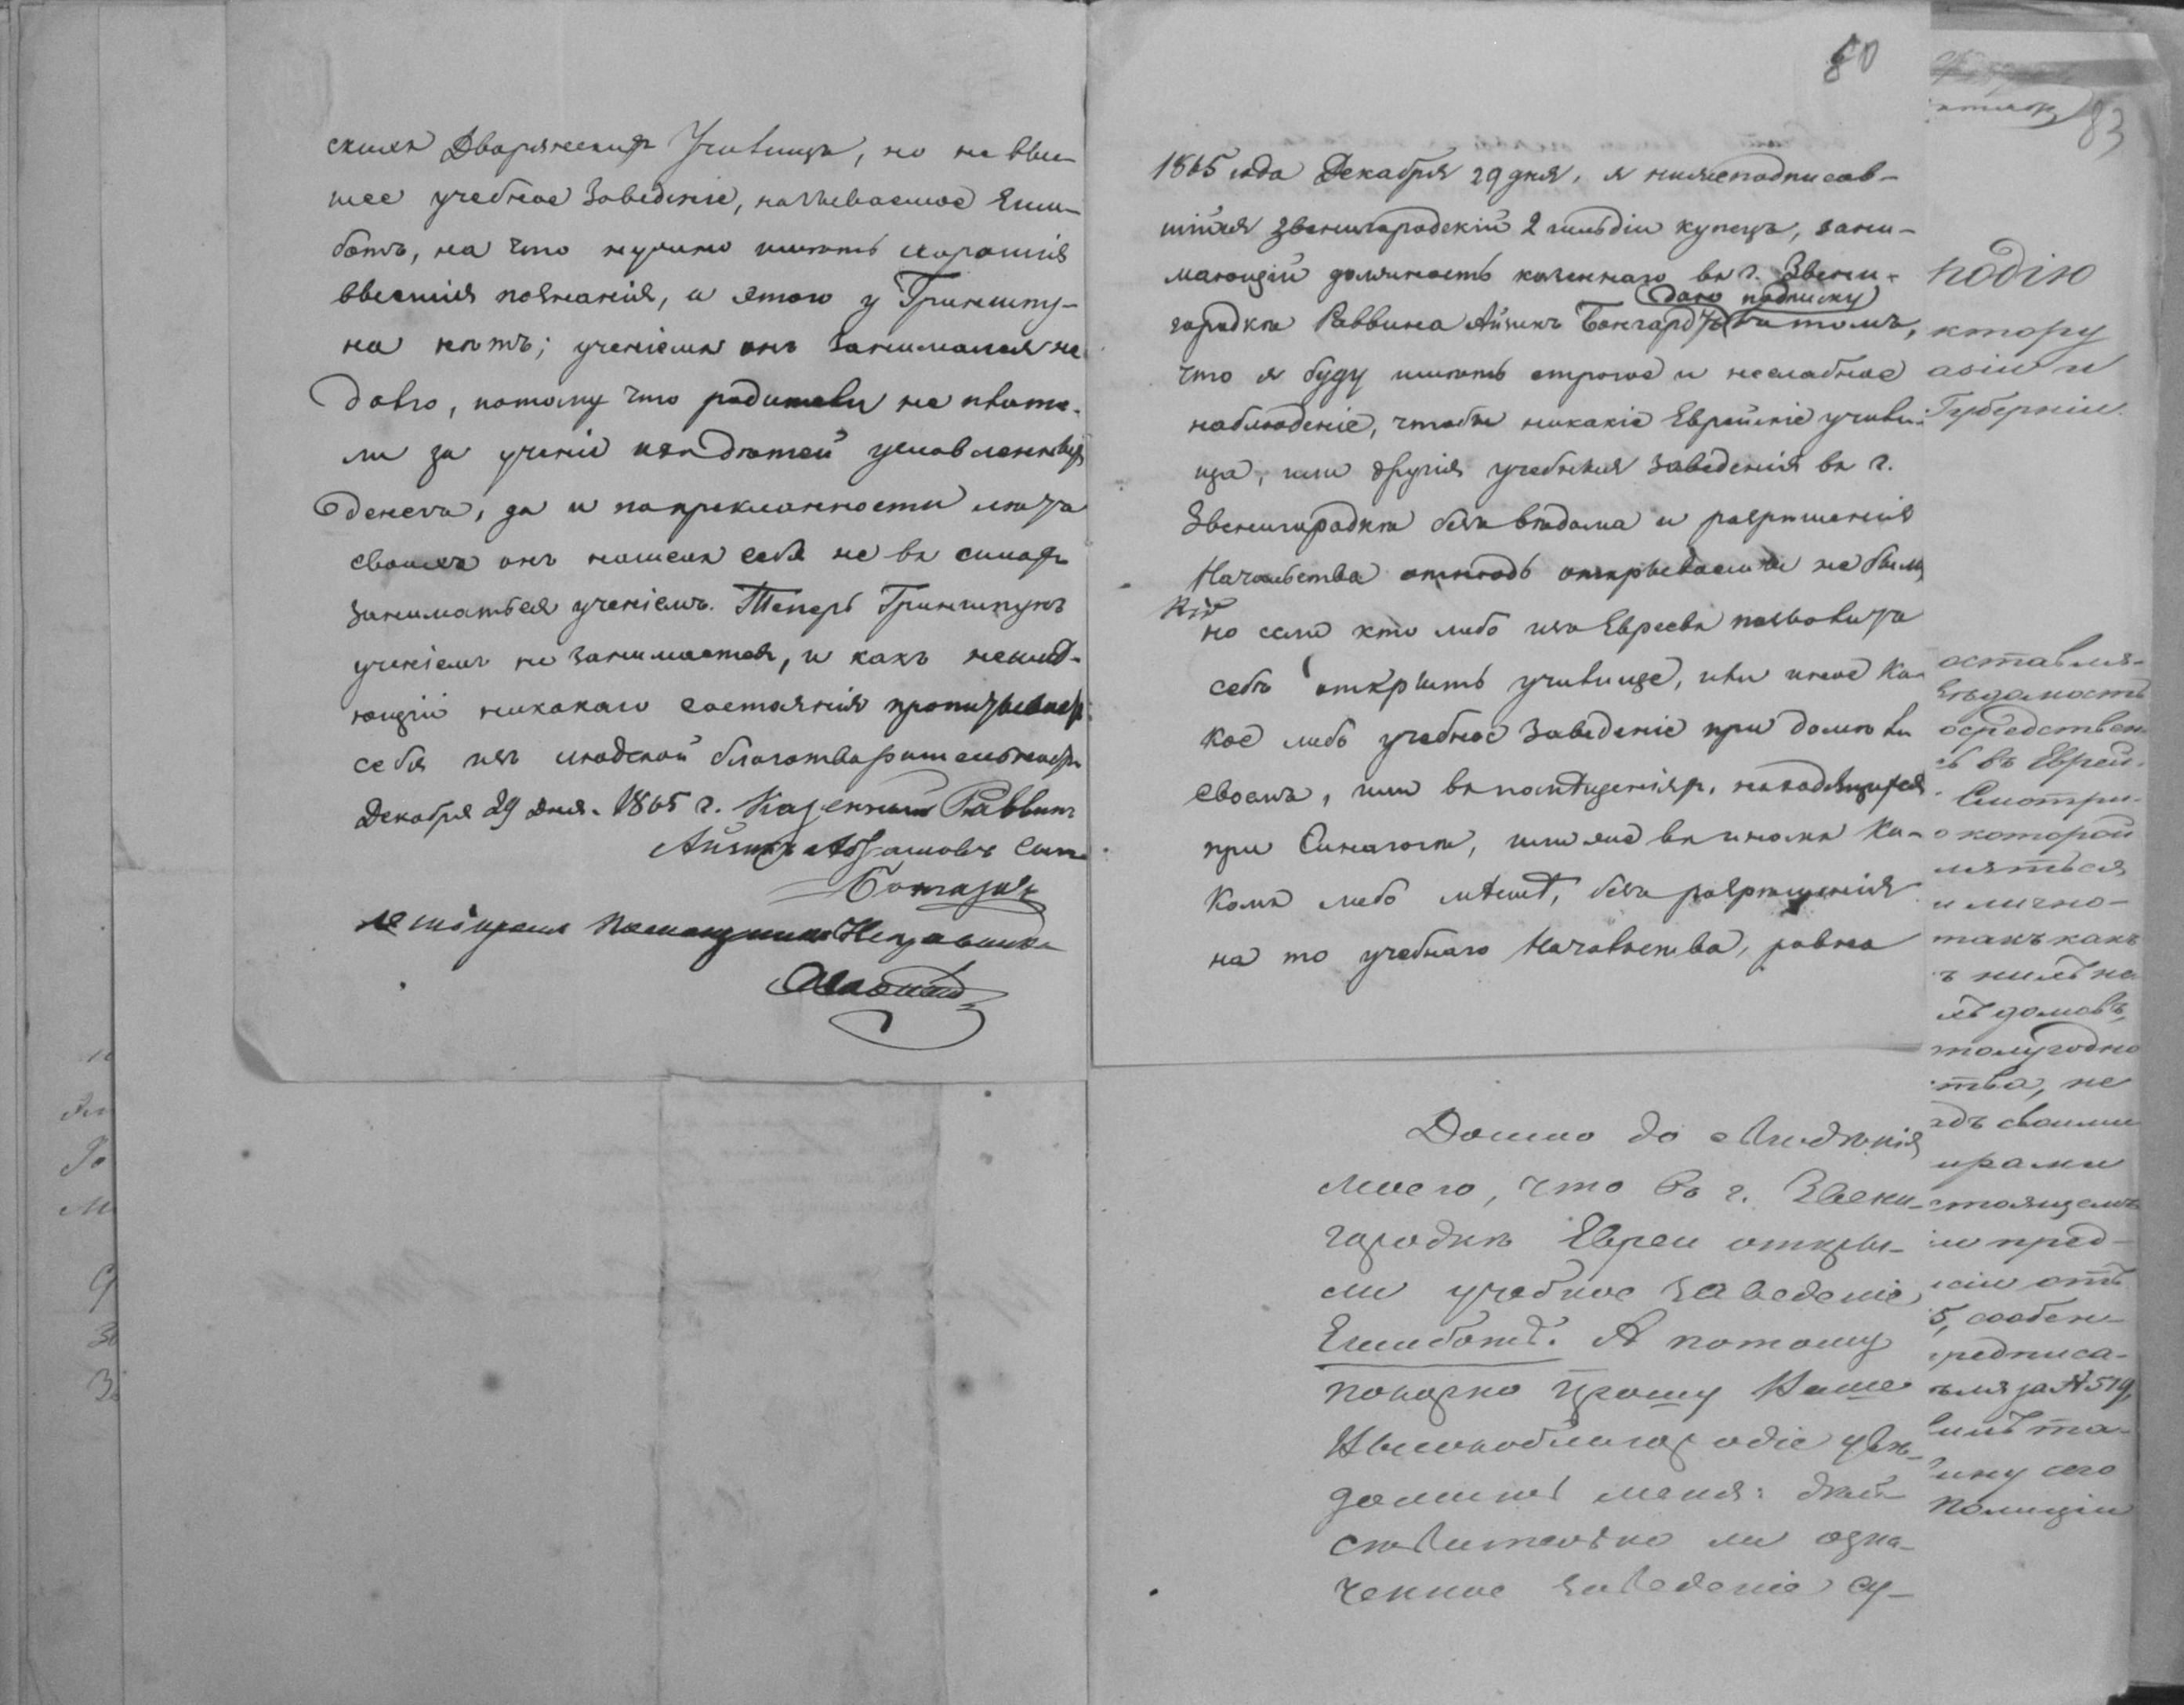 скихъ Дворянскихъ Училищъ, но на выс-
шее учебное заведеніе, называемое Еши-
ботъ, на что нужно имѣть хорошія
высшія познанія, и этого у Гриншпу-
на нѣтъ; ученіемъ онъ занимался не
долго, потому что родители не плати-
ли за ученіе ихъ дѣтей условленныхъ
денегъ, да и по преклонности лѣтъ
своихъ онъ нашелъ себя не въ силахъ
заниматься ученіемъ. Теперь Гриншпунъ
ученіемъ не занимается, и какъ неимѣ-
ющій никакого состоянія
себя изъ людской благотворительности
Декабря 29 дня 1865 г. Казенный Раввинъ
Айзикъ Абрамовъ сынъ
Бонгардъ
Помощникъ Исправника
80
83
1865 года Декабря 29 дня, я нижеподписав-
шійся Звенигородскій 2 гильдіи купецъ, зани-
мающій должность казеннаго въ г. Звени-
даю подписку
городкѣ Раввина Айзикъ Бонгардъ въ томъ,
что я буду имѣть строгое и неслабное
наблюденіе, чтобы никакіе Еврейскіе учили-
ща, или другія учебныя заведенія въ г.
Звенигородкѣ безъ вѣдома и разрѣшенія
Начальства отнюдь открываемы не были,
но если кто либо изъ Евреевъ позволитъ
себѣ открыть училище, или иное ка-
кое либо учебное заведеніе при домѣ ли
своемъ, или въ помѣщеніяхъ, находящихся
при Синагогѣ, или же въ иномъ ка-
комъ либо мѣстѣ, безъ разрѣшенія
на то учебнаго Начальства, равно
Дошло до свѣдѣнія
моего, что въ г. Звени-
городкѣ Евреи откры-
ли учебное заведеніе
Ешиботъ. А потому
покорно прошу Ваше
Высокоблагородіе увѣ-
домить меня: дѣй-
ствительно ли озна-
ченное заведеніе су-
ктору
Губерніи
оставля-
ѣдомость
осредствен-
ь въ Еврей-
Смотри-
о которой
ляться
и лично-
такъ какъ
домовъ,
тва, не
своими
стоящемъ
пред-
отъ
5, особен-
редписа-
за № 519,
сего
Полиціи